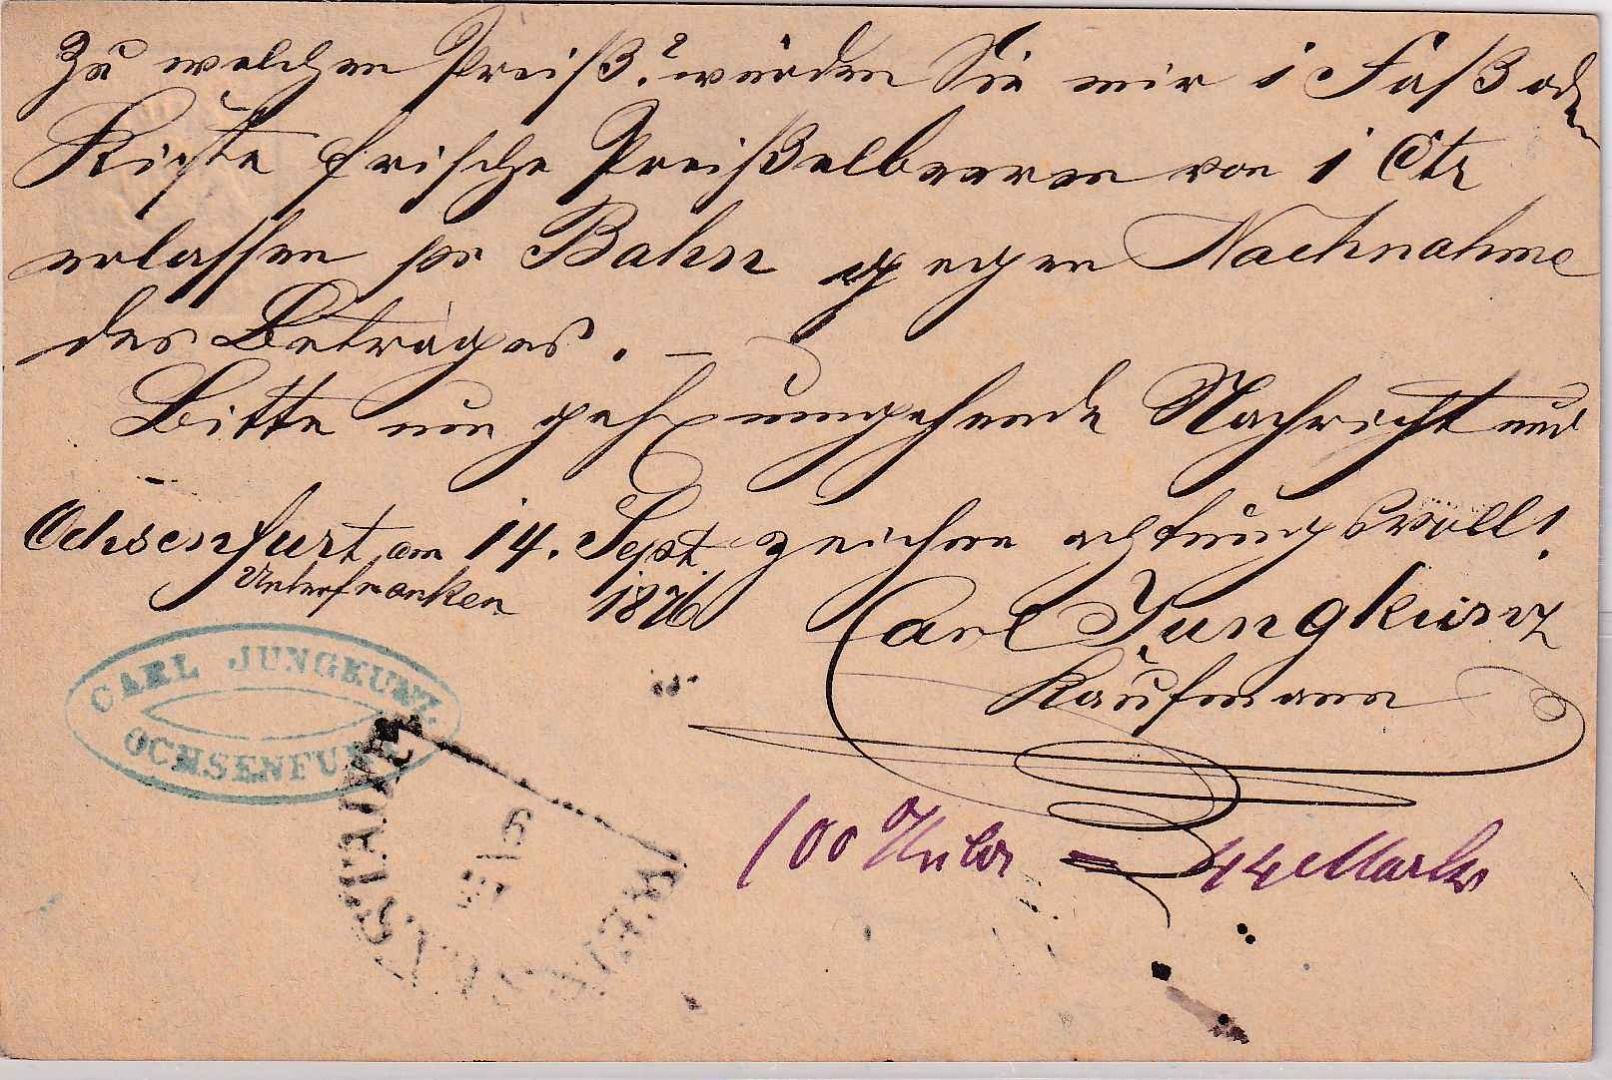 Zu welchem Preiß? würden Sie mir 1 Faß oder
Kiste frische Preißelbeeren von 1 Ctr
erlassen per Bahn gegen Nachnahme
des Betrages. —
Bitte um gefl umgehende Nachricht und
Ochsenfurt, am 14. Sept. zeichne achtungsvoll!
Unterfranken 1876
Carl Jungkunz
Kaufmann
CARL JUNGKUNZ
OCHSENFURT
100 = 44 Mark